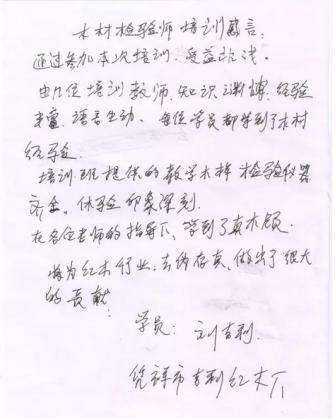 木材检验师培训感言:
通过参加本次培训、受益非浅。
由几位培训教师、知识渊博、经验
丰富、语言生动。每位学员都学到了木材
经验。
培训班提供的教学木样检验仪器
齐全。体验印象深刻.
在各位老师的指导下、学到了真本领
将为红木行业、去伪存真、做出了很大
的贡献:
学员: 刘吉利.
凭祥市吉利红木厂